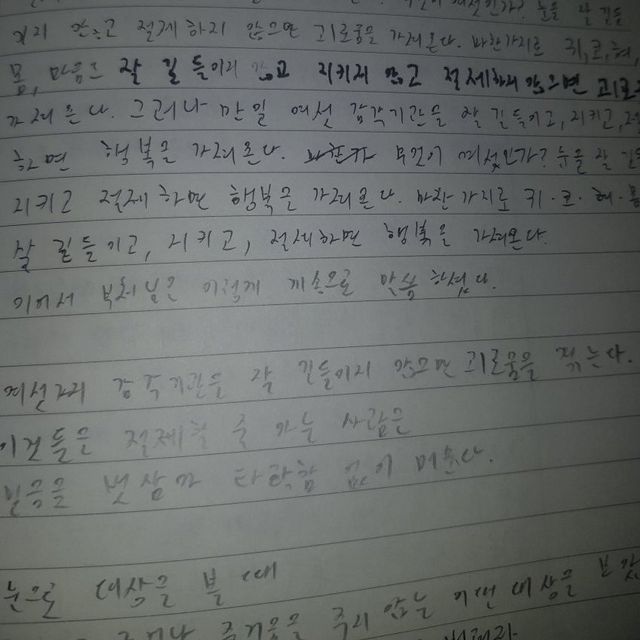 키지 않고 절제하지 않으면 괴로움을 가져온다. 마찬가지로 귀,코,혀,
몸, 마음도 잘 길들이지 않고 지키지 않고 절제하지 않으면 괴로
가져온다. 그러나 만일 여섯 감각기관을 잘 길들이고, 지키고, 절
하면 행복을 가져온다. 무엇이 여섯인가? 눈을 잘 길들
지키고 절제하면 행복을 가져온다. 마찬가지로 귀·코·혀·몸
잘 길들이고, 지키고, 절제하면 행복을 가져온다.
이어서 부처님은 이렇게 게송으로 말씀하셨다.
여섯가지 감각기관을 잘 길들이지 않으면 괴로움을 겪는다.
이것들을 절제할 줄 아는 사람은
믿음을 벗삼아 타락함 없이 머문다.
눈으로 대상을 볼 때
즐거움을 주지 않는 어떤 대상을 보았